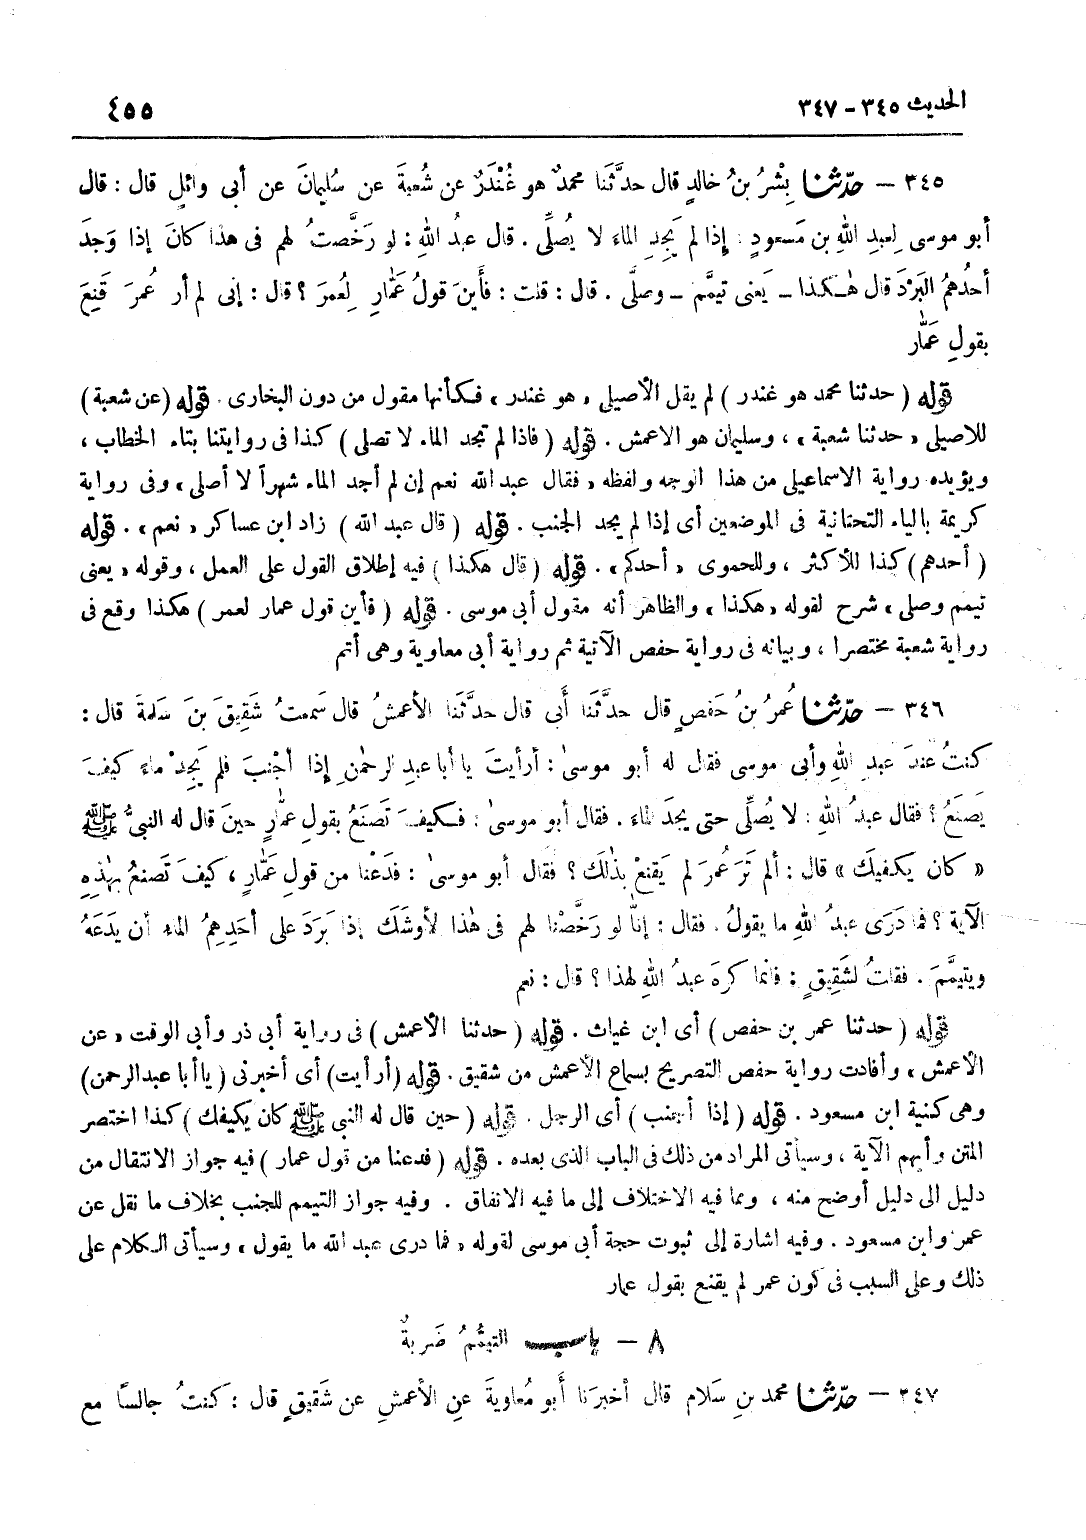 الحديث ٣٤٥ - ٣٤٧
٤٥٥
٣٤٥ – حدّثنا بِشْرُ بنُ خالدٍ قال حدَّثَنا محمدٌ هو غُنْدَرٌ عن شُعبةَ عن سُليمانَ عن أبى وائلٍ قال : قال
أبو موسى لِعبدِ اللهِ بن مَسعودٍ : إِذا لم يَجِدِ الماءَ لا يُصلِّى . قال عبدُ اللهِ : لو رَخَّصتُ لهم فى هذا كانَ إذا وَجدَ
أحدُهمُ البَرْدَ قال هٰـكذا – يَعنى تيمَّم – وصلَّى . قال : قلت : فأَينَ قولُ عَمَّارٍ لِعُمرَ ؟ قال : إنى لم أر عُمرَ قَنِعَ
بقولِ عَمَّار
قوله ( حدثنا محمد هو غندر ) لم يقل الأصيلى « هو غندر » فكأنها مقول من دون البخارى . قوله (عن شعبة)
للاصيلى « حدثنا شعبة » ، وسليمان هو الاعمش . قوله ( فاذا لم تجد الماء لا تصلى ) كذا فى روايتنا بتاء الخطاب ،
ويؤيده رواية الاسماعيلى من هذا الوجه ولفظه « فقال عبد الله نعم إن لم أجد الماء شهراً لا أصلى » وفى رواية
كريمة بالياء التحتانية فى الموضعين أى إذا لم يجد الجنب . قوله ( قال عبد الله ) زاد ابن عساكر « نعم » . قوله
( أحدهم ) كذا للأكثر ، وللحموى « أحدكم » . قوله ( قال هكذا ) فيه إطلاق القول على العمل ، وقوله « يعنى
تيمم وصلى » شرح لقوله « هكذا » والظاهر أنه مقول أبى موسى . قوله ( فأين قول عمار لعمر ) هكذا وقع فى
رواية شعبة مختصرا ، وبيانه فى رواية حفص الآتية ثم رواية أبى معاوية وهى أتم
٣٤٦ – حدّثنا عُمرُ بنُ حَفصٍ قال حدَّثَنا أَبى قال حدَّثَنا الأعمشُ قال سَمعتُ شَقِيقَ بنَ سَلمةَ قال :
كنتُ عندَ عبدِ اللهِ وأبى موسى فقال له أبو موسىٰ : أرأيتَ يا أبا عبدِ الرحمٰنِ إذا أجْنبَ فلم يَجِدْ ماءً كيفَ
يَصنَعُ ؟ فقال عبدُ اللهِ : لا يُصلِّى حتى يجدَ الماءَ . فقال أبو موسىٰ : فكيفَ تَصنَعُ بقولِ عمَّارٍ حينَ قال له النبىُّ ﷺ
« كان يكفيكَ » قال : ألم تَرَ عُمرَ لم يَقنعْ بذٰلكَ ؟ فقال أبو موسىٰ : فدَعْنا من قولِ عَمَّارٍ ، كيفَ تَصنعُ بهٰذِهِ
الآية ؟ فما دَرَى عبدُ اللهِ ما يقولُ . فقال : إنَّا لو رَخَّصْنا لهم فى هٰذا لأوشَكَ إذا بَرَدَ على أحَدِهِمُ الماءُ أن يدَعَهُ
ويتيمَّمَ . فقلتُ لشَقِيقٍ : فانما كرهَ عبدُ اللهِ لهذا ؟ قال : نعم
قوله ( حدثنا عمر بن حفص ) أى ابن غياث . قوله ( حدثنا الأعمش ) فى رواية أبى ذر وأبى الوقت « عن
الأعمش » وأفادت رواية حفص التصريح بسماع الأعمش من شقيق . قوله (أرأيت) أى أخبرنى (يا أبا عبد الرحمن)
وهى كنية ابن مسعود . قوله ( إذا أجنب ) أى الرجل . قوله ( حين قال له النبى ﷺ كان يكفيك ) كذا اختصر
المتن وأبهم الآية ، وسيأتى المراد من ذلك فى الباب الذى بعده . قوله ( فدعنا من قول عمار ) فيه جواز الانتقال من
دليل الى دليل أوضح منه ، ومما فيه الاختلاف إلى ما فيه الاتفاق . وفيه جواز التيمم للجنب بخلاف ما نقل عن
عمر وابن مسعود . وفيه اشارة إلى ثبوت حجة أبى موسى لقوله « فما درى عبد الله ما يقول » وسيأتى الكلام على
ذلك وعلى السبب فى كون عمر لم يقنع بقول عمار
٨ – باب التيمُّمُ ضَربةٌ
٣٤٧ – حدّثنا محمد بن سَلام قال أخبرَنا أَبو مُعاويةَ عنِ الأعمشِ عن شَقيقٍ قال : كنتُ جالسًا مع